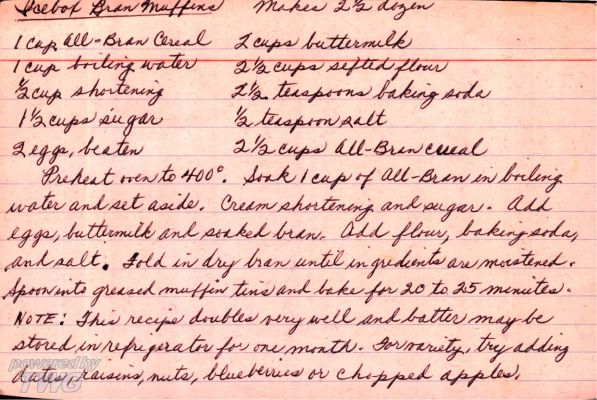 Icebox Bran Muffins Makes 2 1/2 dozen
1 cup All-Bran Cereal 2 cups buttermilk
1 cup boiling water 2 1/2 cups sifted flour
1/2 cup shortening 2 1/2 teaspoons baking soda
1 1/2 cups sugar 1/2 teaspoon salt
2 eggs, beaten 2 1/2 cups All-Bran cereal
Preheat oven to 400°. Soak 1 cup of All-Bran in boiling
water and set aside. Cream shortening and sugar. Add
eggs, buttermilk and soaked bran. Add flour, baking soda,
and salt. Fold in dry bran until ingredients are moistened.
Spoon into greased muffin tins and bake for 20 to 25 minutes.
NOTE: This recipe doubles very well and batter may be
stored in refrigerator for one month. For variety, try adding
dates, raisins, nuts, blueberries or chopped apples.
powered by
TWG